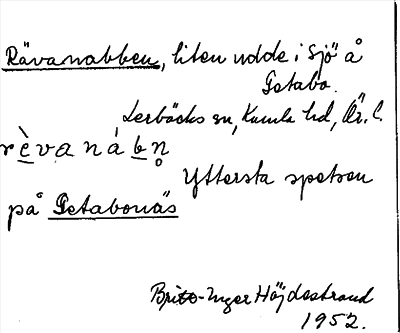 Rävanabben, liten udde i Sjö å
Getabo.
Lerbäcks sn, Kumla hd, Ör. l.
rὲvanábn̥
Yttersta spetsen
på Getabonäs
Brita-Inger Höjdestrand
1952.